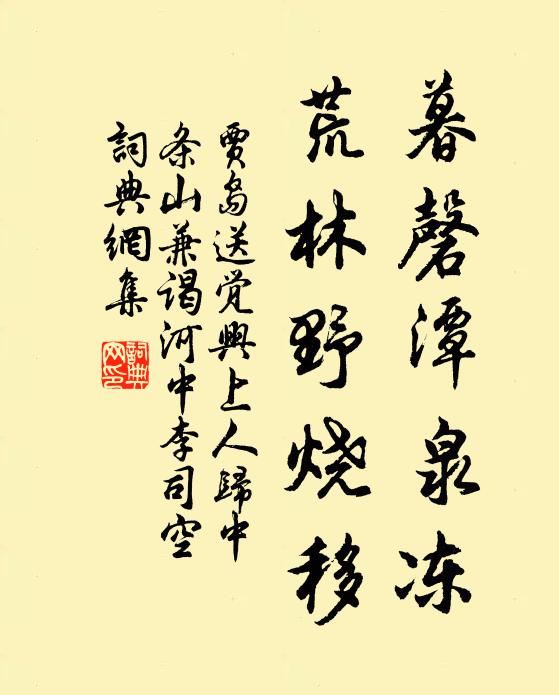 暮磬潭泉冻
荒林野烧移
賈島送觉興上人歸中
条山兼谒河中李司空
詞典網集
詞典網印